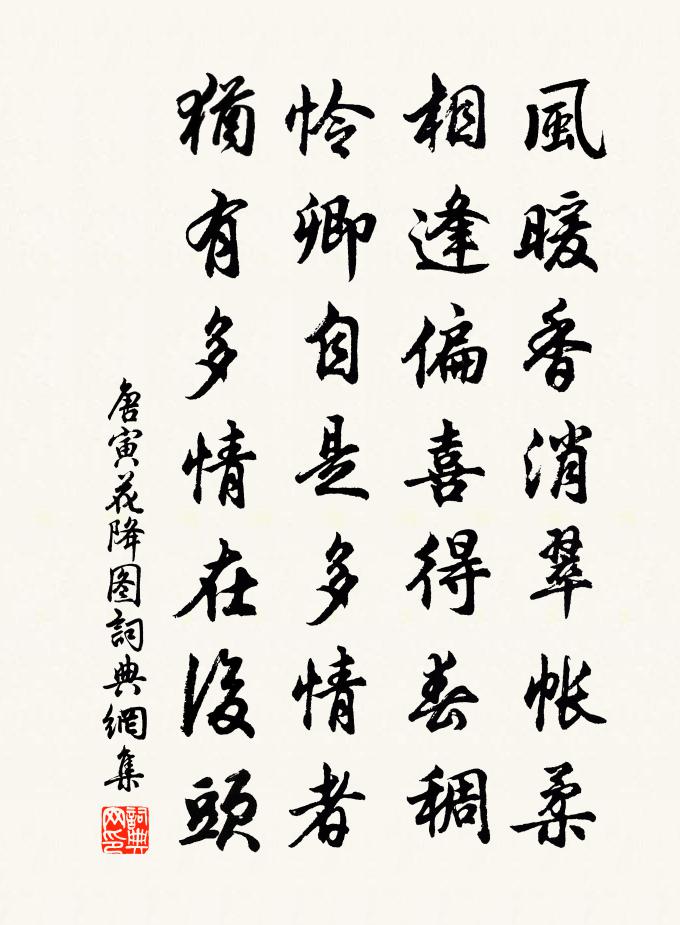 風暖香消翠帳柔
相逢偏喜得春稠
怜卿自是多情者
猶有多情在後頭
唐寅花降图詞典網集
詞典网印